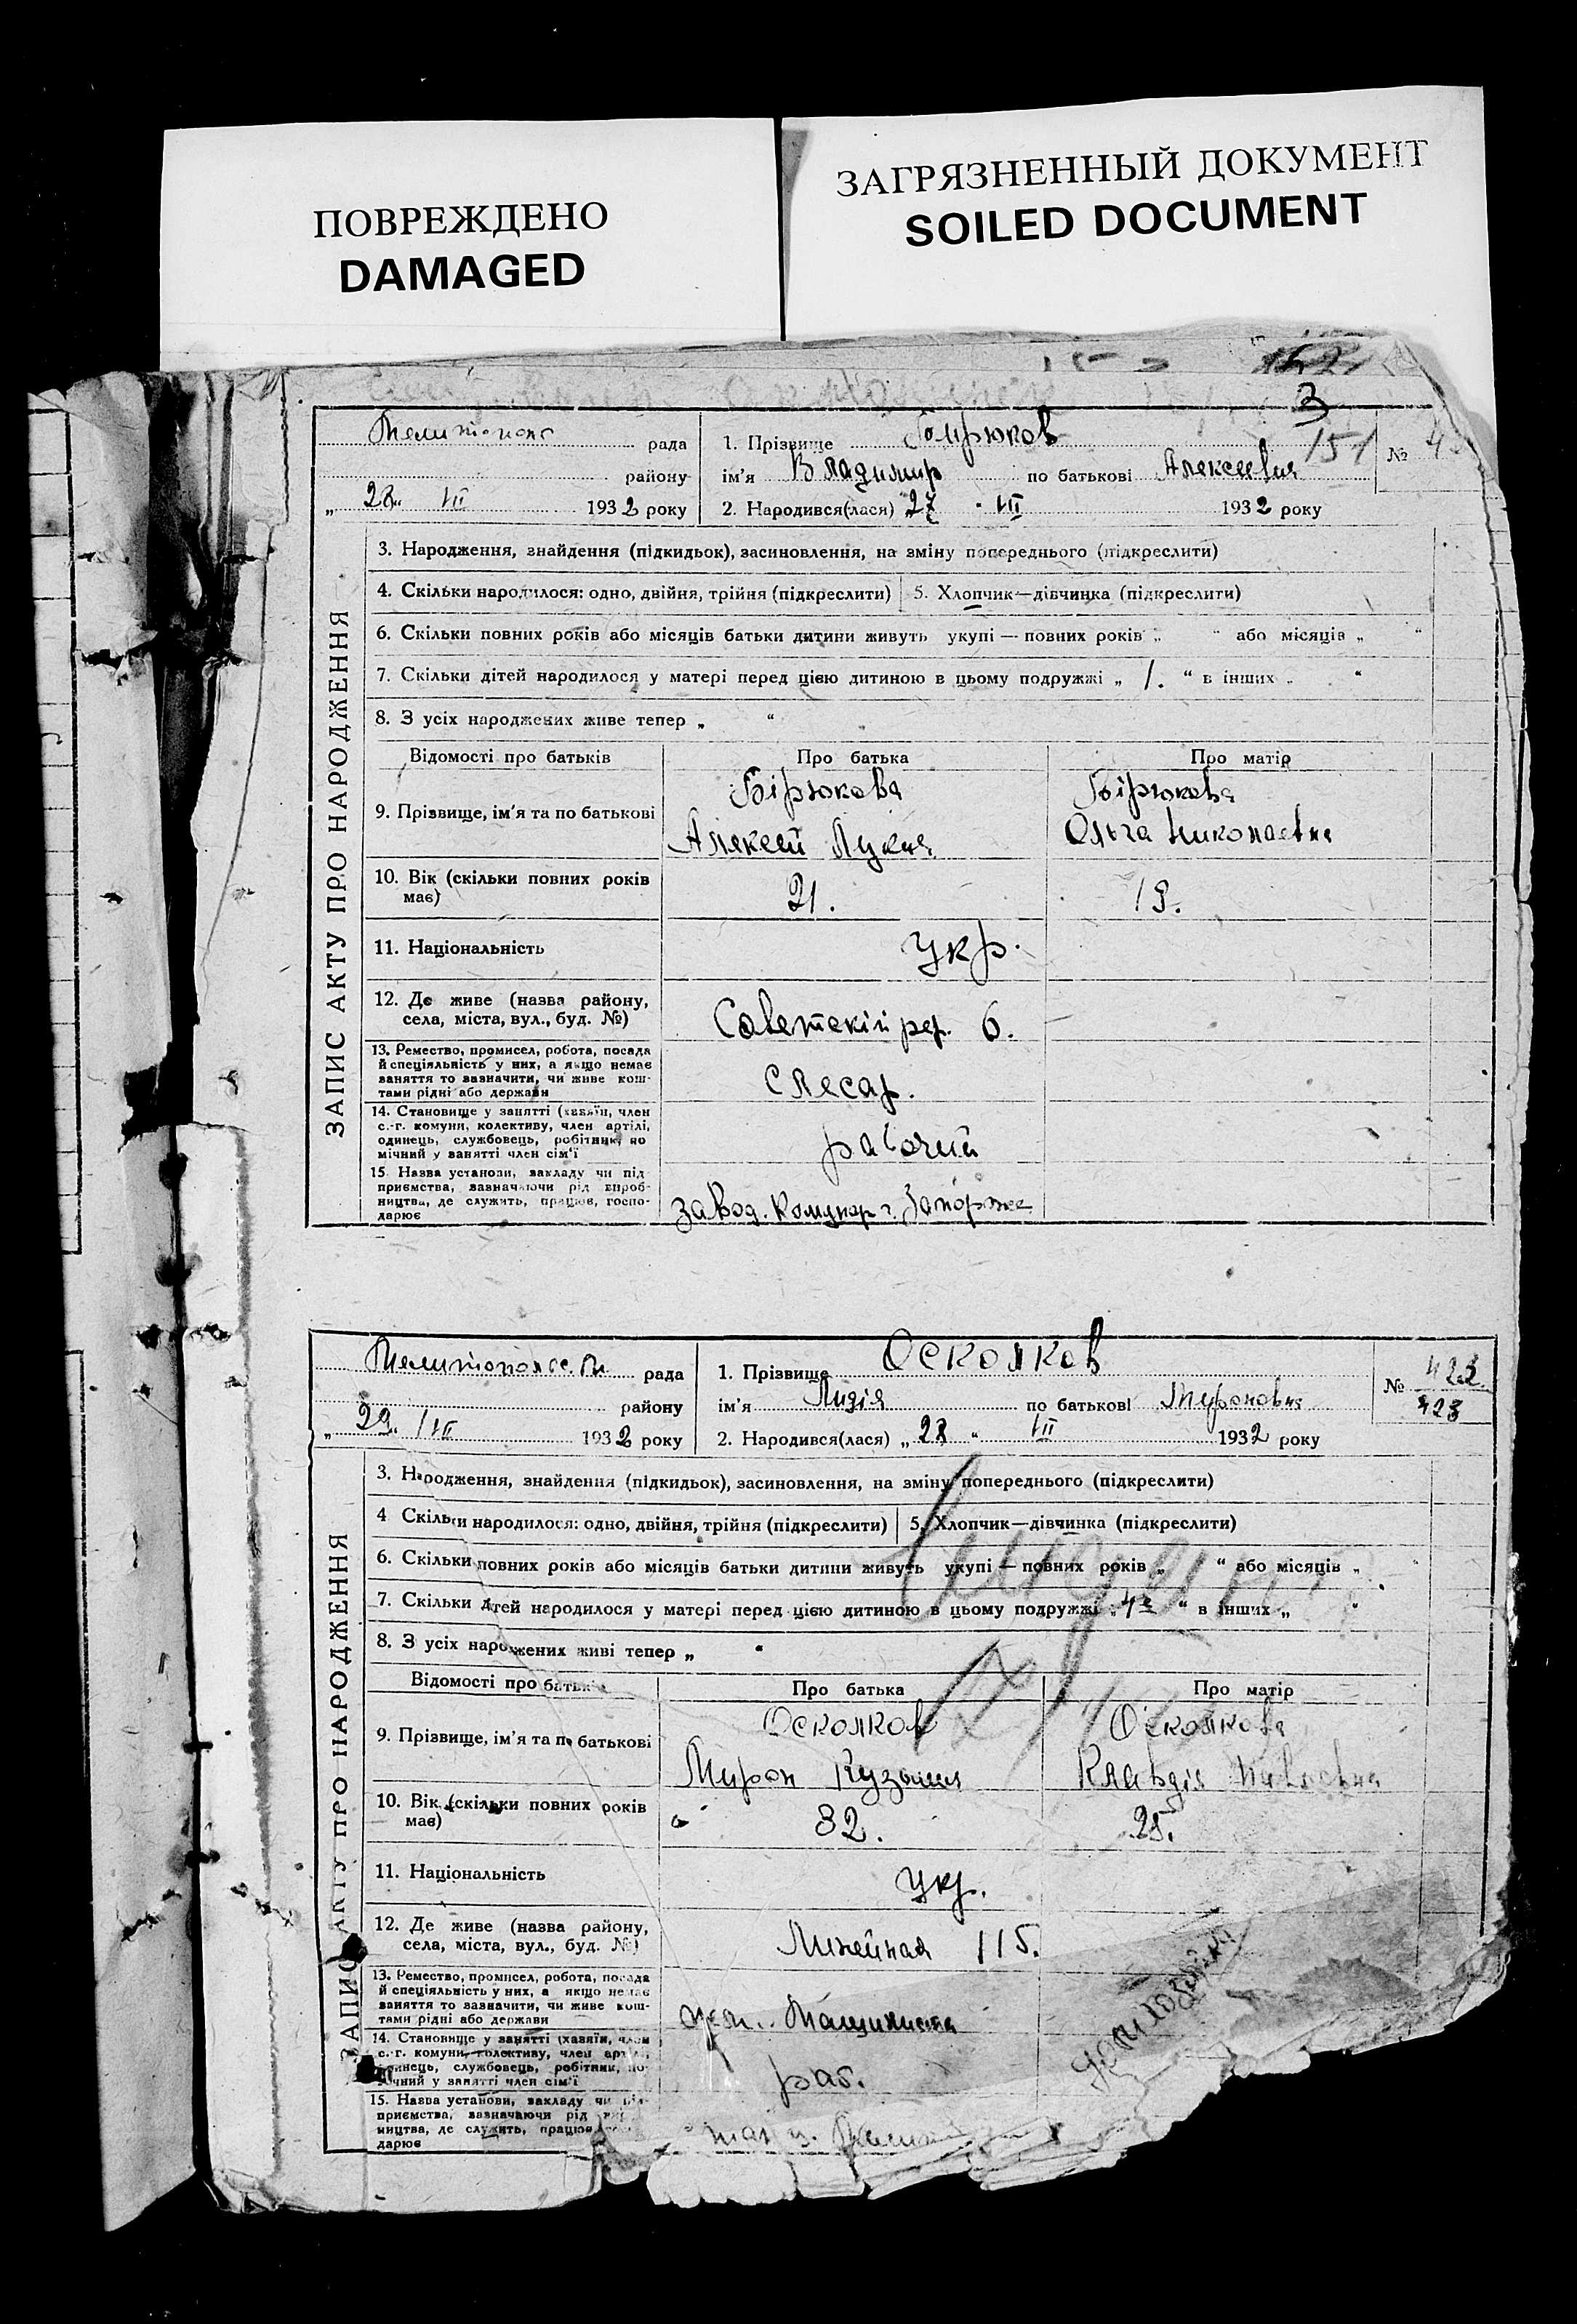 ПОВРЕЖДЕНО
DAMAGED
ЗАГРЯЗНЕННЫЙ ДОКУМЕНТ
SOILED DOCUMENT
3
151
рада
району
„ 28 “ VII 1932 року
1. Прізвище Бирюков
ім'я Владимир по батькові Алексеевич
2. Народився(лася) 27 " VII 1932 року
№ 4
ЗАПИС АКТУ ПРО НАРОДЖЕННЯ
3. Народження, знайдення (підкидьок), засиновлення, на зміну попереднього (підкреслити)
4. Скільки народилося: одно, двійня, трійня (підкреслити)
5. Хлопчик—дівчинка (підкреслити)
6. Скільки повних років або місяців батьки дитини живуть укупі — повних років „ “ або місяців „ “
7. Скільки дітей народилося у матері перед цією дитиною в цьому подружжі „ 1. “ в інших „ “
8. З усіх народжених живе тепер „ “
Відомості про батьків Про батька Про матір
9. Прізвище, ім'я та по батькові
Бірюкова
Алексей Лукич
Бірюкова
Ольга Николаевна
10. Вік (скільки повних років
має)
21. 19.
11. Національність
Укр.
12. Де живе (назва району,
села, міста, вул., буд. №)
Советскій пер. 6.
13. Ремество, промисел, робота, посада
й спеціяльність у них, а якщо немає
заняття то зазначити, чи живе кош-
тами рідні або держави
Слесар.
14. Становище у занятті (хазяїн, член
с.-г. комуни, колективу, член артілі,
одинець, службовець, робітник, по
мічний у занятті член сім'ї
рабочий
15. Назва установи, закладу чи під
приємства, зазначаючи рід вироб-
ництва, де служить, працює, госпо-
дарює
завод. Комунар г. Запорожье
рада
району
„ 29 “ VII 1932 року
1. Прізвище Осколков
ім'я Лидія по батькові Мироновна
2. Народився(лася) „ 28 “ VII 1932 року
№ 423
423
ЗАПИС АКТУ ПРО НАРОДЖЕННЯ
3. Народження, знайдення (підкидьок), засиновлення, на зміну попереднього (підкреслити)
4 Скільки народилося: одно, двійня, трійня (підкреслити)
5. Хлопчик—дівчинка (підкреслити)
6. Скільки повних років або місяців батьки дитини живуть укупі — повних років „ “ або місяців „
7. Скільки дітей народилося у матері перед цією дитиною в цьому подружжі „ “ в інших „ “
8. З усіх народжених живі тепер „ “
Відомості про батьків Про батька Про матір
9. Прізвище, ім'я та по батькові
Осколков
Мирон Кузьмич
Осколкова
Клавдія
10. Вік (скільки повних років
має)
32. 25.
11. Національність
Укр.
12. Де живе (назва району,
села, міста, вул., буд. №)
Линейная 115.
13. Ремество, промисел, робота, посада
й спеціяльність у них, а якщо немає
заняття то зазначити, чи живе кош-
тами рідні або держави
пом. Машиниста
14. Становище у занятті (хазяїн, член
с.-г. комуни, колективу, член артілі,
одинець, службовець, робітник, по-
мічний у занятті член сім'ї
раб.
15. Назва установи, закладу чи під-
приємства, зазначаючи рід
ництва, де служить, працює
дарює